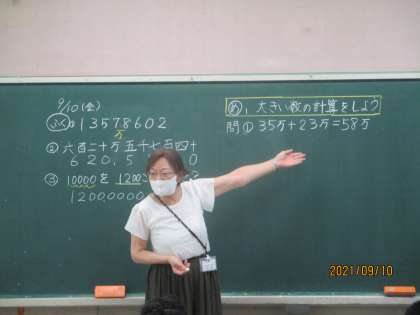 9/10(金)
ふく① 13578602
万
② 六百二十万五千七百四十
620,5 0
③ 10000を 1200
1200,0000
め 大きい数の計算をしよう
問① 35万+23万=58万
2021/09/10